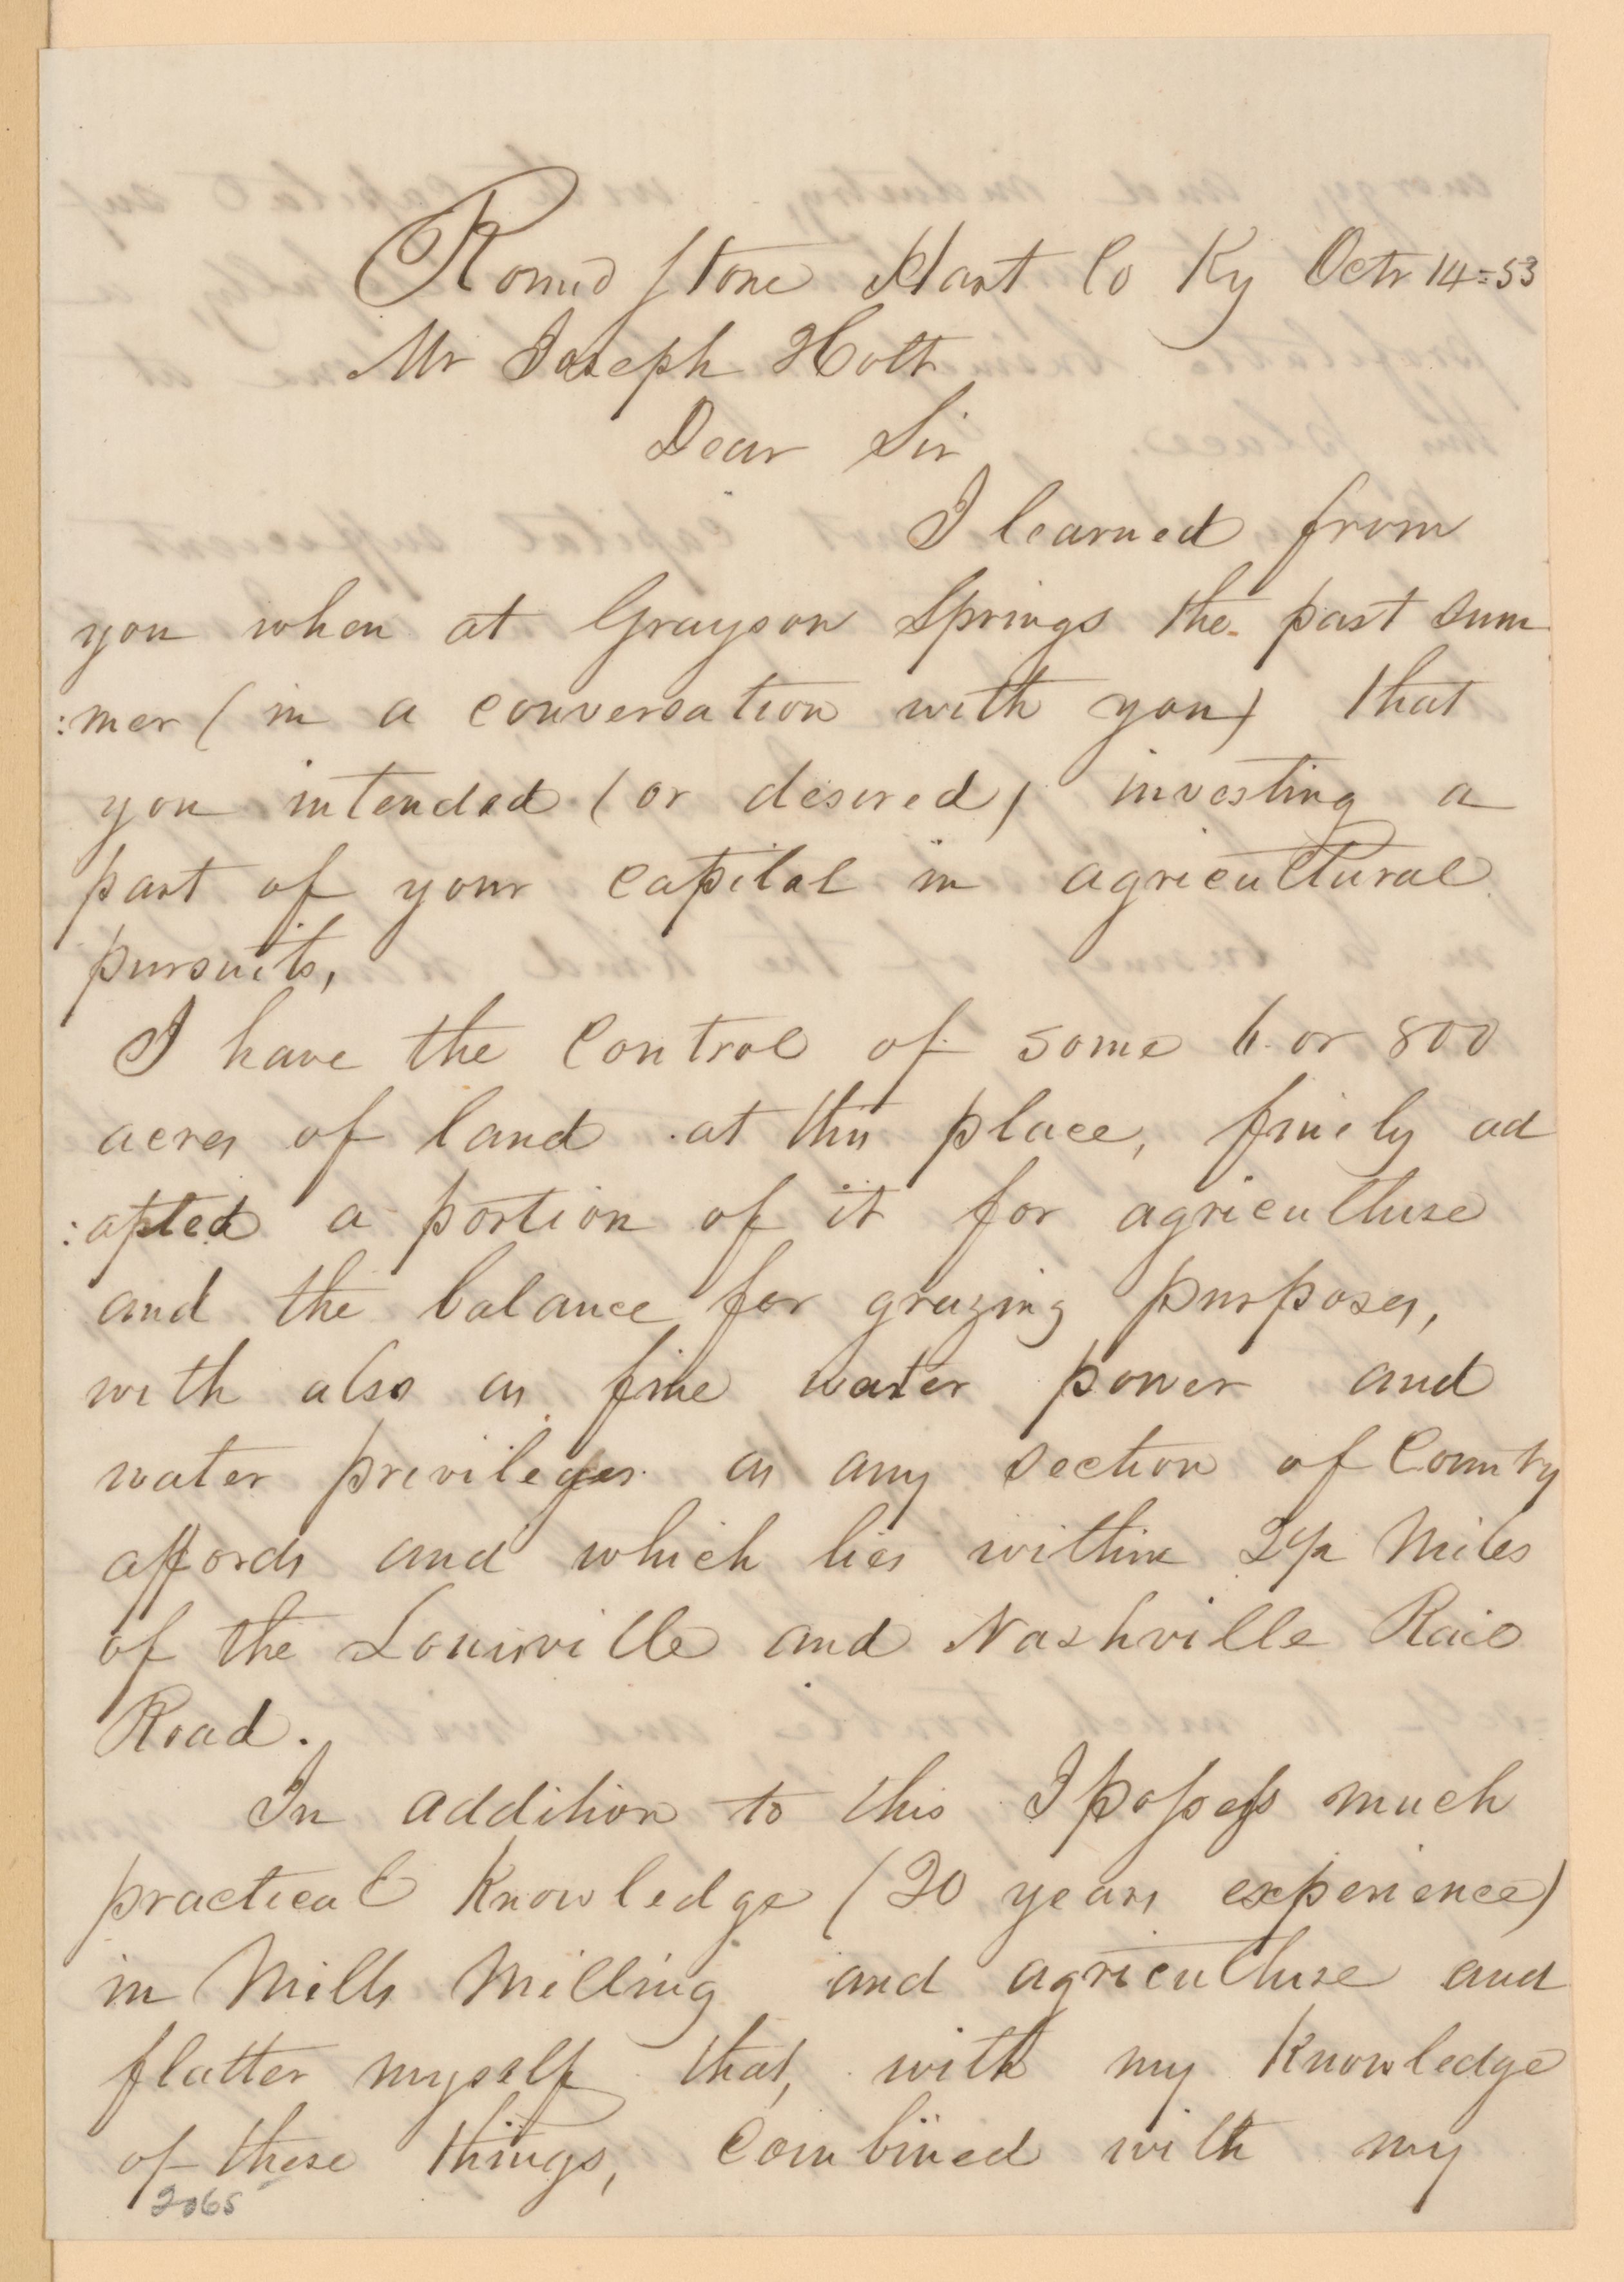 Round Stone Hart Co Ky Octr 14=53
Mr Joseph Holt
Dear Sir
I learned from
you when at Grayson Springs the past sum
:mer (in a conversation with you) that
you intended (or desired) investing a
part of your capital in agricultural
pursuits,
I have the Control of some 6. or 800
acres of land at this place, finely ad
:apted a portion of it for agriculture
and the balance for grazing purposes,
with also as fine water power and
water privileges as any section of County
affords and which lies within 2½ Miles
of the Louisville and Nashville Rail
Road.
In addition to this I possess much
practical Knowledge (20 years experience)
in Mills Milling and agriculture and
flatter myself that, with my Knowledge
of these things, Combined with my
2065